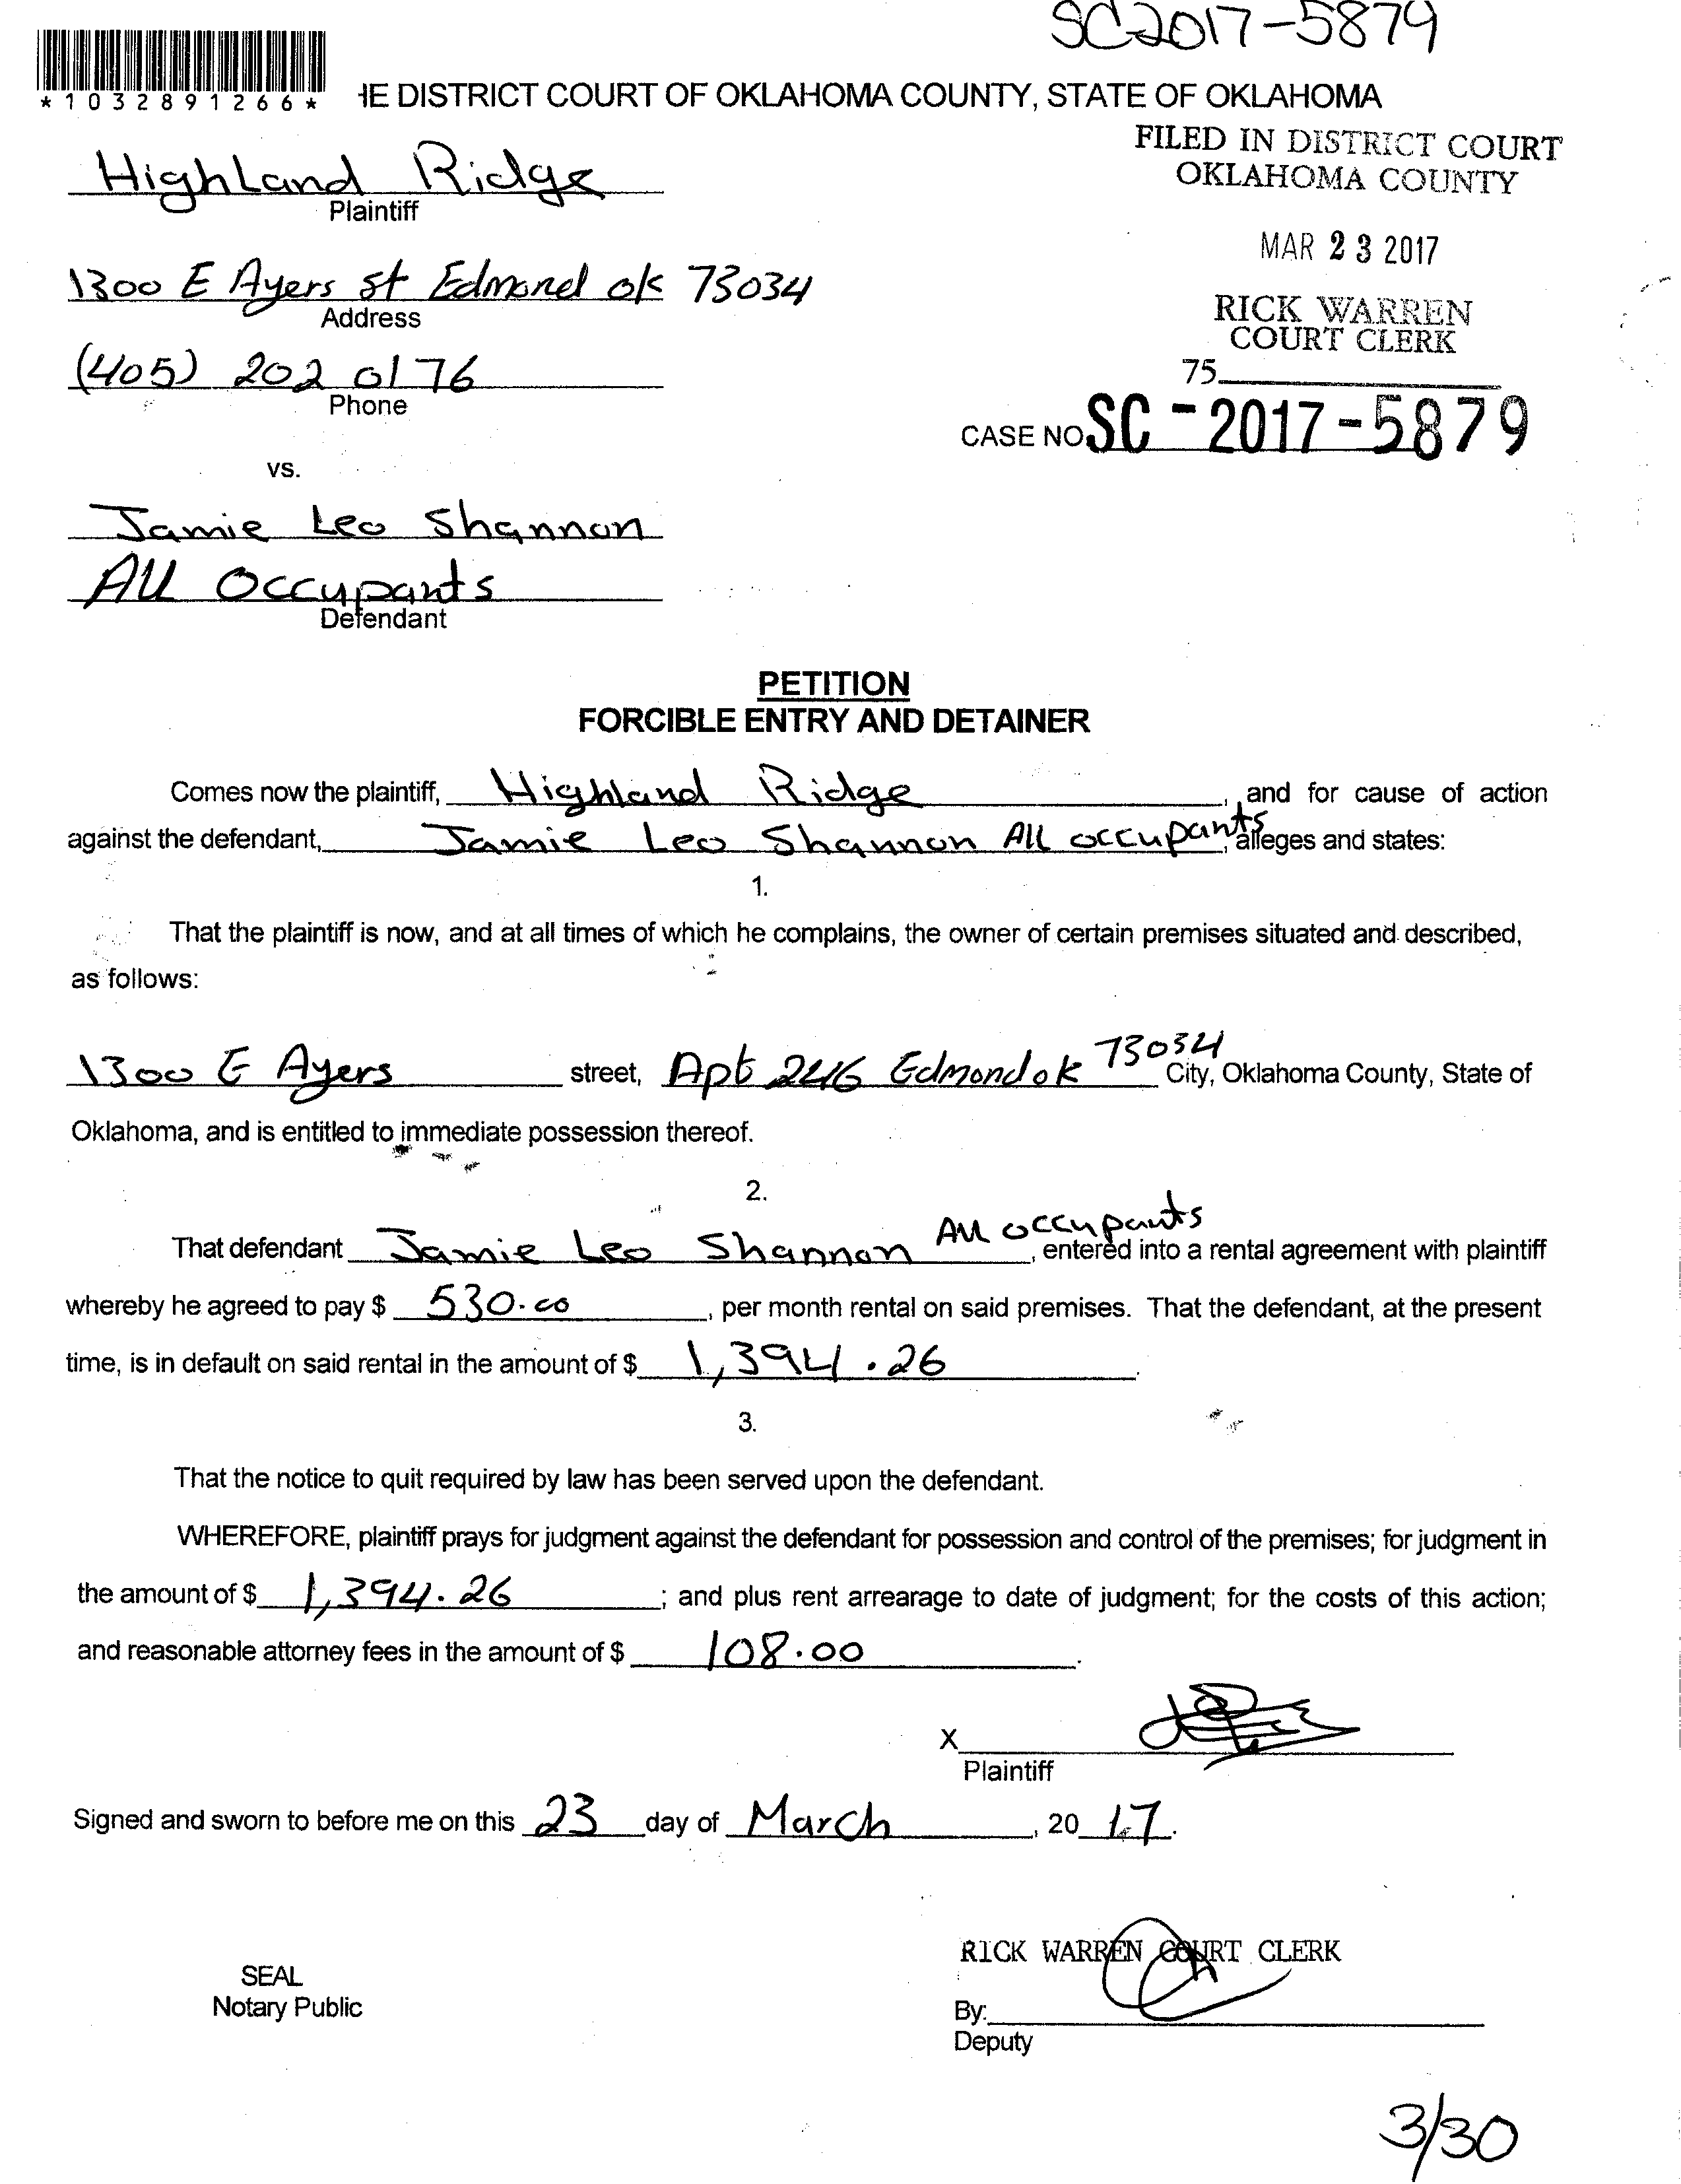 SC2017-5879
*1032891266*
HE DISTRICT COURT OF OKLAHOMA COUNTY, STATE OF OKLAHOMA
FILED IN DISTRICT COURT
OKLAHOMA COUNTY
Highland Ridge
Plaintiff
MAR 23 2017
1300 E Ayers St Edmond ok 73034
Address
RICK WARREN
COURT CLERK
(405) 202 0176
Phone
75
CASE NO. SC-2017-5879
vs.
Jamie Leo Shannon
All Occupants
Defendant
PETITION
FORCIBLE ENTRY AND DETAINER
Comes now the plaintiff, Highland Ridge, and for cause of action
against the defendant, Jamie Leo Shannon All occupants, alleges and states:
1.
That the plaintiff is now, and at all times of which he complains, the owner of certain premises situated and described,
as follows:
1300 E Ayers street, Apt 246 Edmond ok 73034 City, Oklahoma County, State of
Oklahoma, and is entitled to immediate possession thereof.
2.
That defendant Jamie Leo Shannon All occupants, entered into a rental agreement with plaintiff
whereby he agreed to pay $ 530.00, per month rental on said premises. That the defendant, at the present
time, is in default on said rental in the amount of $ 1,394.26.
3.
That the notice to quit required by law has been served upon the defendant.
WHEREFORE, plaintiff prays for judgment against the defendant for possession and control of the premises; for judgment in
the amount of $ 1,394.26; and plus rent arrearage to date of judgment; for the costs of this action;
and reasonable attorney fees in the amount of $ 108.00.
X
Plaintiff
Signed and sworn to before me on this 23 day of March, 20 17.
RICK WARREN COURT CLERK
SEAL
Notary Public
By:
Deputy
3/30